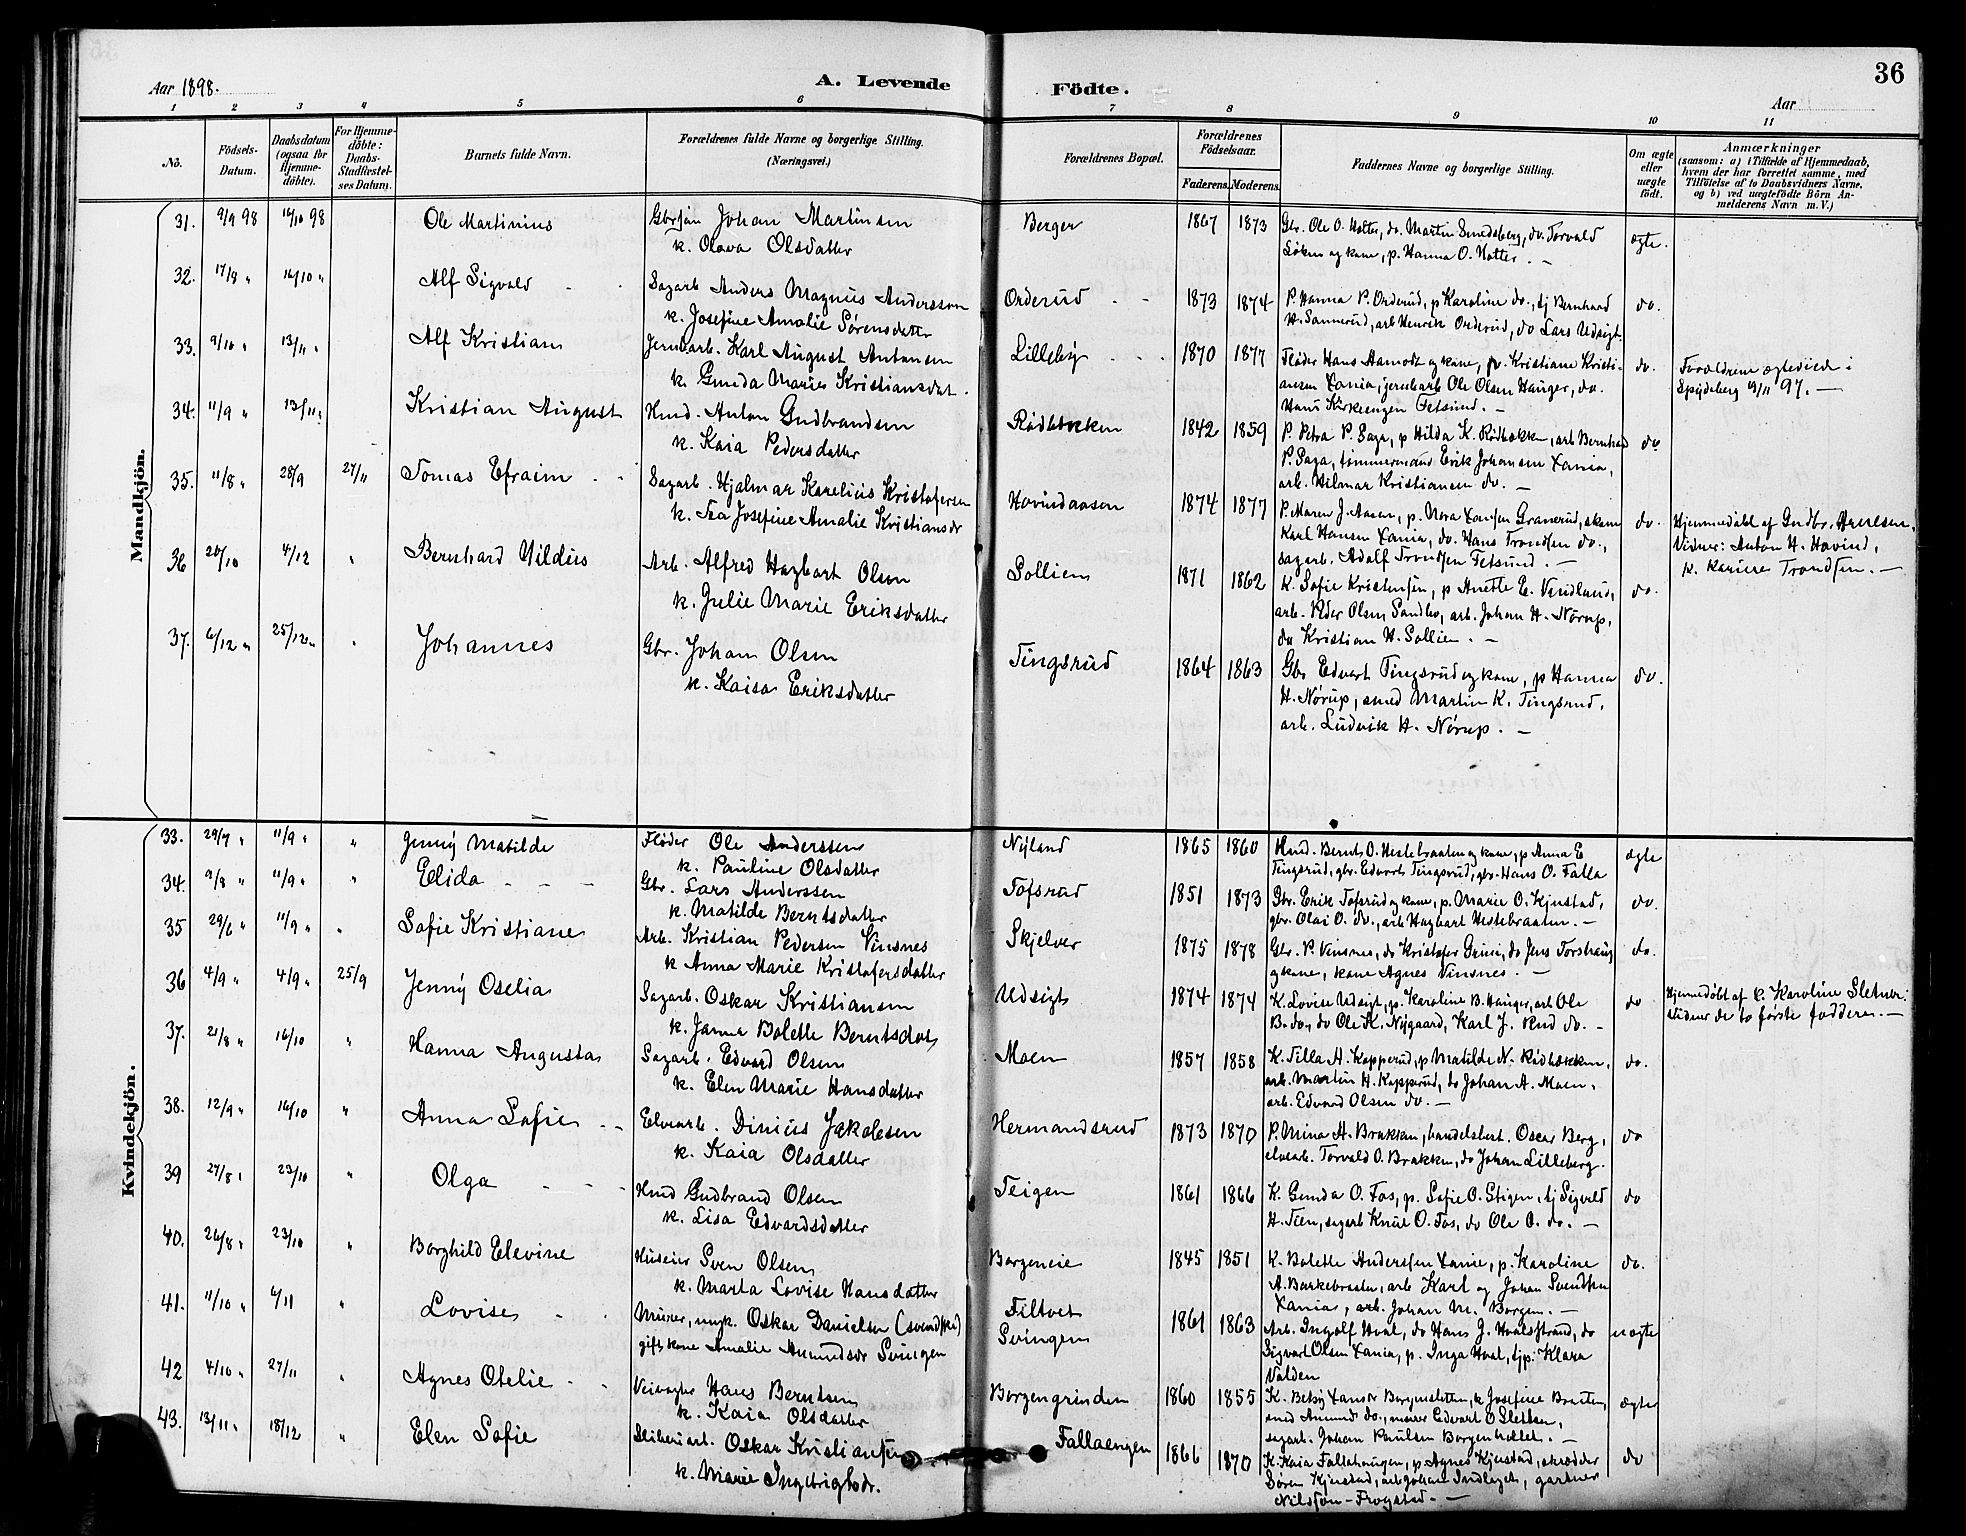 36
Aar 1898.
A. Levende Födte.
Aar
1 2 3 4 5 6 7 8 9 10 11
No.
Födsels-Datum.
Daabsdatum (ogsaa for Hjemmedöbte).
For Hjemmedöbte: Daabs-Stadfæstelses Datum.
Barnets fulde Navn.
Forældrenes fulde Navne og borgerlige Stilling. (Næringsvei.)
Forældrenes Bopæl.
Forældrenes Födselsaar.
Faderens. Moderens.
Faddernes Navne og borgerlige Stilling.
Om ægte eller uægte födt.
Anmærkninger
(saasom: a) i Tilfælde af Hjemmedaab, hvem der har forrettet samme, med Tilföielse af to Daabsvidners Navne, og b) ved uægtefödte Börn Anmelderens Navn m. V.)
Mandkjön.
31. 9/9 98 16/10 98 Ole Martinius Gbrsøn Johan Martinsen Berger 1867 1873 Gbr. Ole O. Hotter, do. Martin Smedsberg, do. Torvald ægte.
k. Olava Olsdatter kone, p. Hanna O. Hotter. —
32. 17/9 " 16/10 " Alf Sigvald Sagarb Anders Magnus Andersson Orderud 1873 1874 P. Hanna P. Orderud, p Karoline do., tj Bernhard do.
k. Josefine Amalie Sørensdatter H. Sannerud, arb Henrik Orderud, do Lars Udsigt.
33. 9/10 " 13/11 " Alf Kristian Jernbarb. Karl August Antonsen Lilleby 1870 1877 Fløder Hans Aamodt og kone, Kristiane Kristi- do. Forældrene ægteviede i
k. Gunda Marie Kristiansdat. ansen Xania, jernbarb Ole Olsen Hauger, do. Spydeberg 9/11 97. —
Hans Kirkeengen Fetsund. —
34. 11/9 " 13/11 " Kristian August Hmd. Anton Gudbrandsen Rødbækken 1842 1859 P. Petra P. Saga, p Hilda K. Rødbækken, arb Bernhard do.
k. Kaia Pedersdatter P. Saga, tømmermand Erik Johansen Xania,
arb. Hilmar Kristiansen do. —
35. 11/8 " 28/9 27/11 Tomas Efraim Sagarb. Hjalmar Karelius Kristofersen Hovindaasen 1874 1877 P. Maren J. Aasen, p. Nora Granerud, do. Hjemmedøbt af Gudbr. Arnesen.
k. Tea Josefine Amalie Kristiansdr Karl Hansen Xania, do. Hans Trondsen do., Vidner: Anton H. Hovind,
sagarb. Adolf Trondsen Fetsund. — k. Karine Trondsen. —
36 20/10 4/12 " Bernhard Hildus Arb. Alfred Hagbart Olsen Sollien 1871 1862 K. Sofie Kristensen, p Anette E. Vindlund, do.
k. Julie Marie Eriksdatter arb. Peder Olsen Sandbo, arb. Johan H. Nørup,
do Kristian H. Sollien. —
37. 6/12 " 25/12 " " Johannes Gbr. Johan Olsen Tingsrud 1864 1863 Gbr Edvart Tingsrud og kone, p Hanna do.
k. Kaisa Eriksdatter H. Nørup, smed Martin K. Tingsrud,
arb. Ludvik H. Nørup. —
Kvindekjön.
33. 29/7 " 11/9 " " Jenny Matilde Fløder Ole Anderssen Nyland 1865 1860 Hmd. Bernt O. Hestebraaten og kone, p Anna E ægte
k. Pauline Olsdatter Tingsrud, gbr. Edvart Tingsrud, gbr. Hans O. Falla
34. 9/8 " 11/9 " " Elida Gbr. Lars Anderssen Tofsrud 1851 1873 Gbr. Erik Tofsrud og kone, p. Marie O. Kjustad, do.
k. Matilde Berntsdatter gbr. Olai O. do., arb Hagbart Hestebraaten. —
35 29/6 " 11/9 " " Sofie Kristiane Arb. Kristian Pedersen Vinsnes Skjelver 1875 1878 Gbr. P. Vinsnes, do Kristofer Grini, do Jens Torshaug do.
k Anna Marie Kristofersdatter og kone, kone Agnes Vinsnes. —
36 4/9 " 4/9 " 25/9 Jenny Oselia Sagarb. Oskar Kristiansen Udsigt 1874 1874 K. Lovise Udsigt, p. Karoline B. Hauger, arb Ole do Hjemmedøbt af k. Karoline Sletner.
k. Janna Bolette Berntsdat B. do, do Ole K. Nygaard, Karl J. Rud do. — de to første faddere. —
37. 21/8 " 16/10 " Hanna Augusta Sagarb. Edvard Olsen Moen 1857 1858 K. Tilla H. Kopperud, p Matilde N. Rødbækken, do.
k. Elen Marie Hansdatter arb. Martin H. Kopperud, do Johan A. Moen,
arb. Edvard Olsen do. —
38. 12/9 " 16/10 " Anna Sofie Elvearb. Dinius Jakobsen Hermandsrud 1873 1870 P. Mina H. Brakken, handelsbest. Oscar Berg, do
k. Kaia Olsdatter elvearb. Torvald O. Brakken, do Johan Lilleberg.
39 27/8 " 23/10 " Olga Hmd Gudbrand Olsen Teigen 1861 1866 K. Gunda O. Fos, p. Sofie O. Stigen, tj Sigvald do
k. Lisa Edvardsdatter H. Tien, sagarb Knut O. Fos, do Ole O. do. —
40. 26/8 " 23/10 " Borghild Elevine Huseier Sven Olsen Borgeneie 1845 1851 K. Bolette Anderssen Xania, p. Karoline do.
k. Marta Lovise Hansdatter A. Barkebraaten, arb Karl og Johan Svendsen
Xania, arb. Johan M. Borgen. —
41. 11/10 " 6/11 " Lovise Murer, ungk. Oskar Danielsen (svensk) Filtvet 1861 1863 Arb. Ingolf Hval, do Hans J. do uægte
gift kone Amalie Amundsdr Svingen Svingen Sigvart Olsen Xania, p. Inga Hval, tjp. Klara
Valden
42 4/10 " 27/11 " Agnes Otelie Veivogter Hans Berntsen Borgengrinden 1860 1855 K. Betsy Borgensletten, k Josefine Braaten, ægte
k. Kaia Olsdatter smed Amund do., murer Edvart O Sletten,
sagarb. Johan Paulsen Borgenhellet. —
43. 13/11 " 18/12 " Elen Sofie Sliberiarb. Oskar Kristiansen Fallaengen 1866 1870 K. Kaia Fallahaugen, p. Agnes Kjustad, skrædder do
k. Marie Ingebrigtsdr. Søren Kjustad, arb Johan Indlaget, gartner
Nilsson-Frogstad. —